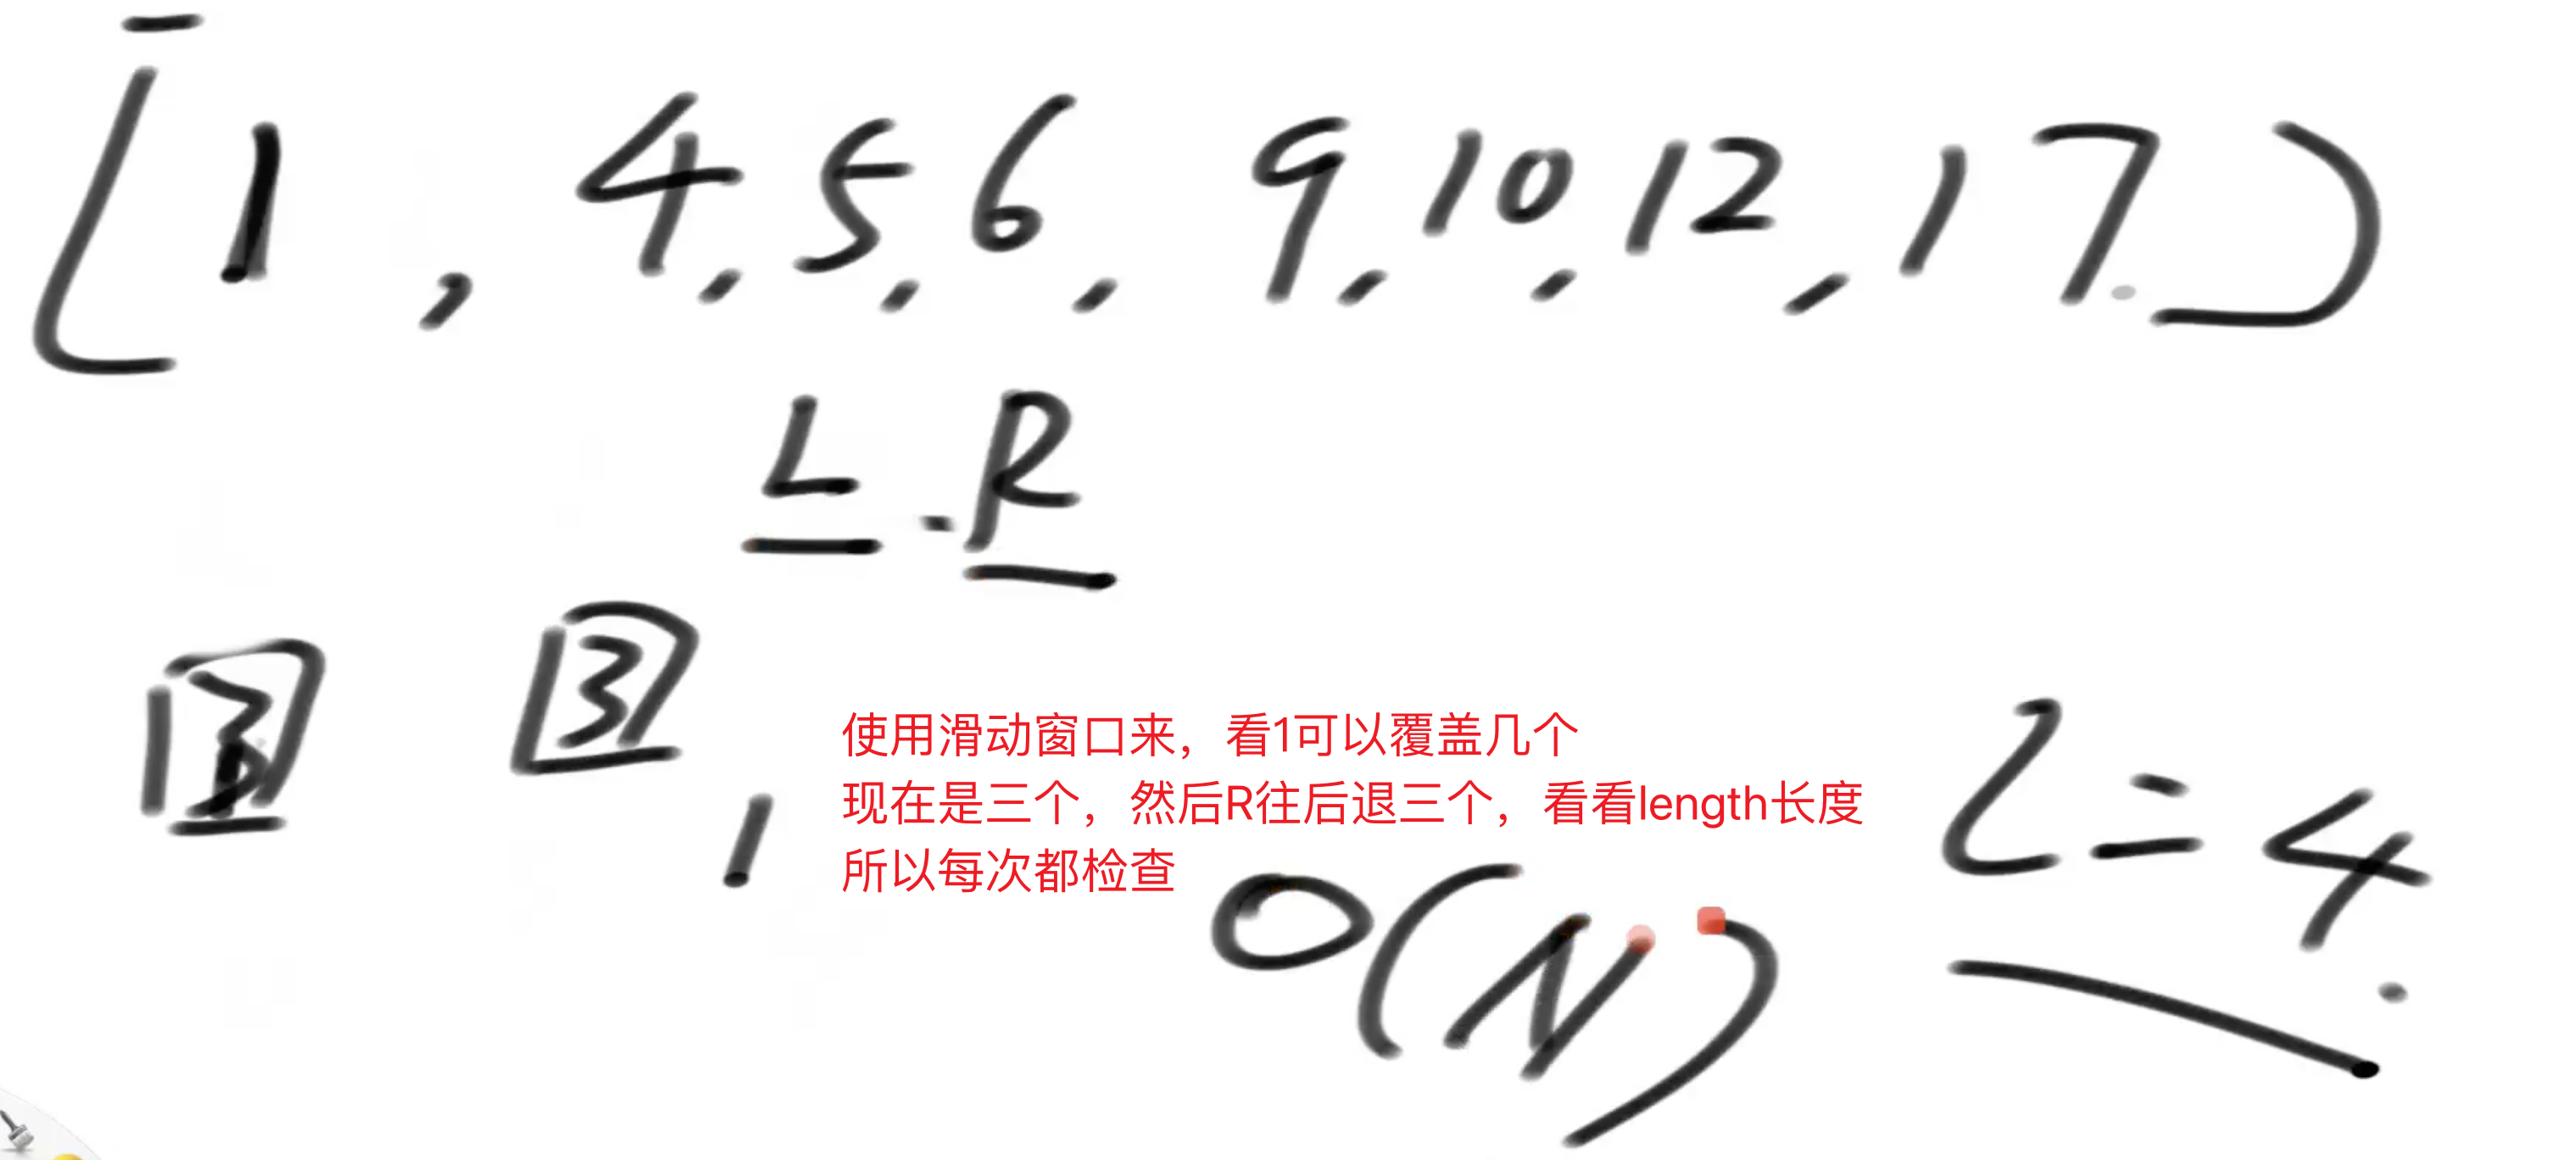 [1, 4, 5, 6, 9, 10, 12, 17.)
L R
3 3
1
使用滑动窗口来，看1可以覆盖几个
现在是三个，然后R往后退三个，看看length长度
所以每次都检查
O(N)
l=4.